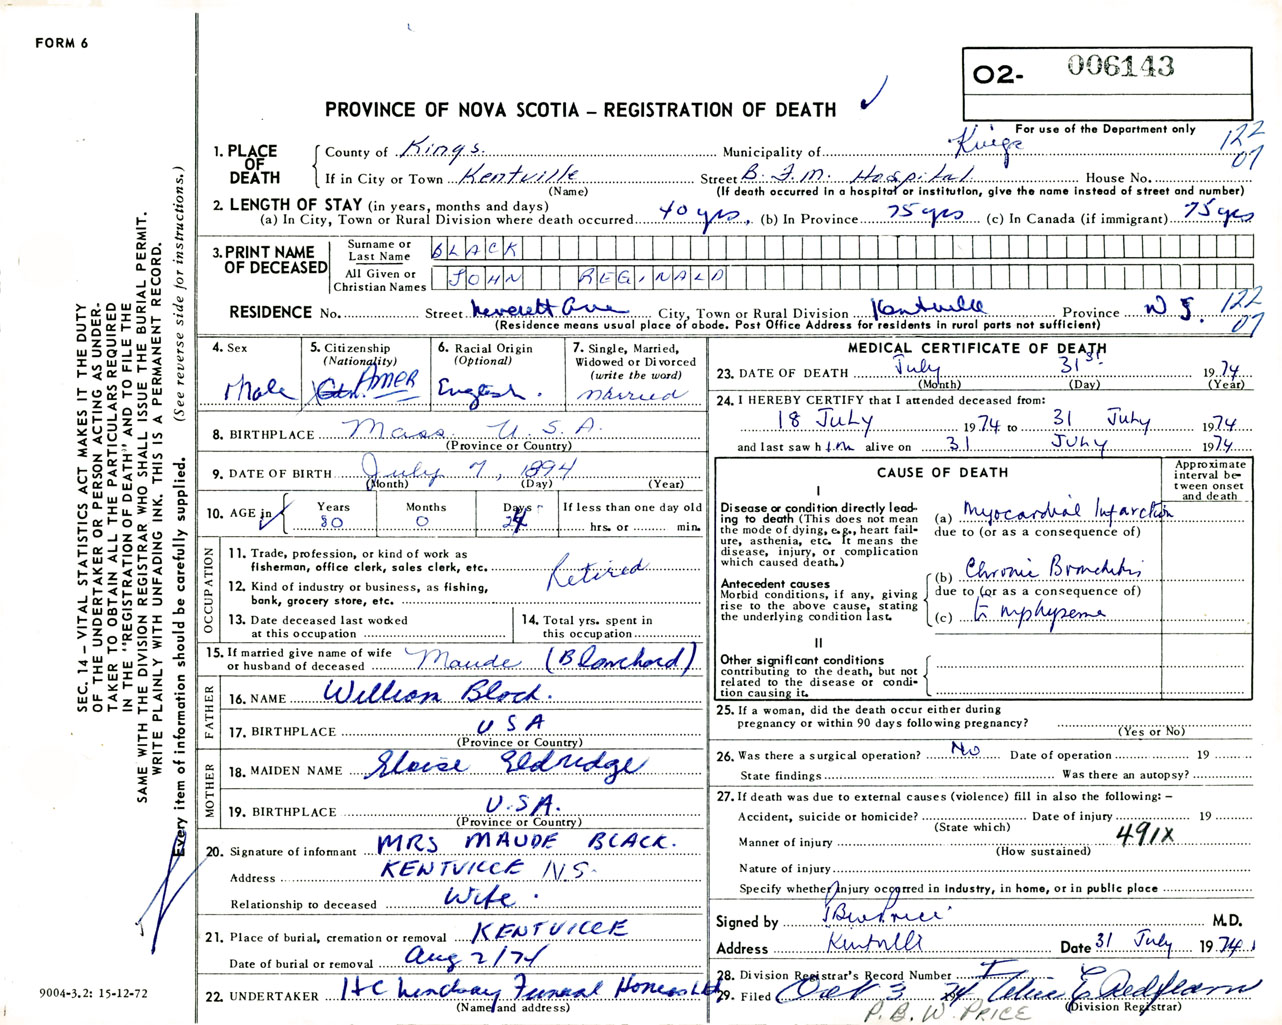 FORM 6
O2- 006143
PROVINCE OF NOVA SCOTIA – REGISTRATION OF DEATH
For use of the Department only
122
07
1. PLACE OF DEATH
County of Kings. Municipality of Kings
If in City or Town Kentville Street B.F.M. Hospital House No.
(Name) (If death occurred in a hospital or institution, give the name instead of street and number)
2. LENGTH OF STAY (in years, months and days)
(a) In City, Town or Rural Division where death occurred 40 yrs, (b) In Province 75 yrs (c) In Canada (if immigrant) 75 yrs
3. PRINT NAME OF DECEASED
Surname or Last Name BLACK
All Given or Christian Names JOHN REGINALD
RESIDENCE No. Street Leverett Ave City, Town or Rural Division Kentville Province N.S.
(Residence means usual place of abode. Post Office Address for residents in rural parts not sufficient)
122
07
4. Sex
Male
5. Citizenship
(Nationality)
Cdn. AMER
6. Racial Origin
(Optional)
English.
7. Single, Married, Widowed or Divorced
(write the word)
Married
8. BIRTHPLACE Mass. U.S.A.
(Province or Country)
9. DATE OF BIRTH July 7, 1894
(Month) (Day) (Year)
10. AGE in
Years Months Days If less than one day old
80 0 24 hrs. or min.
OCCUPATION
11. Trade, profession, or kind of work as
fisherman, office clerk, sales clerk, etc.
Retired
12. Kind of industry or business, as fishing,
bank, grocery store, etc.
13. Date deceased last worked
at this occupation
14. Total yrs. spent in
this occupation
15. If married give name of wife
or husband of deceased Maude (Blanchard)
FATHER
16. NAME William Black.
17. BIRTHPLACE USA
(Province or Country)
MOTHER
18. MAIDEN NAME Eloise Eldridge
19. BIRTHPLACE U.S.A.
(Province or Country)
20. Signature of informant MRS MAUDE BLACK.
Address KENTVILLE N.S.
Relationship to deceased Wife.
21. Place of burial, cremation or removal KENTVILLE
Date of burial or removal Aug 2/74
22. UNDERTAKER H C Lindsay Funeral Homes Ltd
(Name and address)
MEDICAL CERTIFICATE OF DEATH
23. DATE OF DEATH July 31st 1974
(Month) (Day) (Year)
24. I HEREBY CERTIFY that I attended deceased from:
18 July 1974 to 31 July 1974
and last saw him alive on 31 July 1974
CAUSE OF DEATH
Approximate interval between onset and death
I
Disease or condition directly leading to death (This does not mean the mode of dying, e.g., heart failure, asthenia, etc. It means the disease, injury, or complication which caused death.)
(a) Myocardial Infarction
due to (or as a consequence of)
Antecedent causes
Morbid conditions, if any, giving rise to the above cause, stating the underlying condition last.
(b) Chronic Bronchitis
due to (or as a consequence of)
(c) Emphysema
II
Other significant conditions
contributing to the death, but not related to the disease or condition causing it.
25. If a woman, did the death occur either during
pregnancy or within 90 days following pregnancy?
(Yes or No)
26. Was there a surgical operation? No Date of operation 19
State findings Was there an autopsy?
27. If death was due to external causes (violence) fill in also the following: –
Accident, suicide or homicide? Date of injury 19
(State which)
Manner of injury 491X
(How sustained)
Nature of injury
Specify whether injury occurred in industry, in home, or in public place
Signed by PBW Price M.D.
Address Kentville Date 31 July 1974
28. Division Registrar's Record Number
29. Filed Oct 3 74
(Division Registrar)
P.B.W. PRICE
SEC. 14 – VITAL STATISTICS ACT MAKES IT THE DUTY
OF THE UNDERTAKER OR PERSON ACTING AS UNDER-
TAKER TO OBTAIN ALL THE PARTICULARS REQUIRED
IN THE "REGISTRATION OF DEATH" AND TO FILE THE
SAME WITH THE DIVISION REGISTRAR WHO SHALL ISSUE THE BURIAL PERMIT.
WRITE PLAINLY WITH UNFADING INK. THIS IS A PERMANENT RECORD.
Every item of information should be carefully supplied. (See reverse side for instructions.)
9004-3.2: 15-12-72